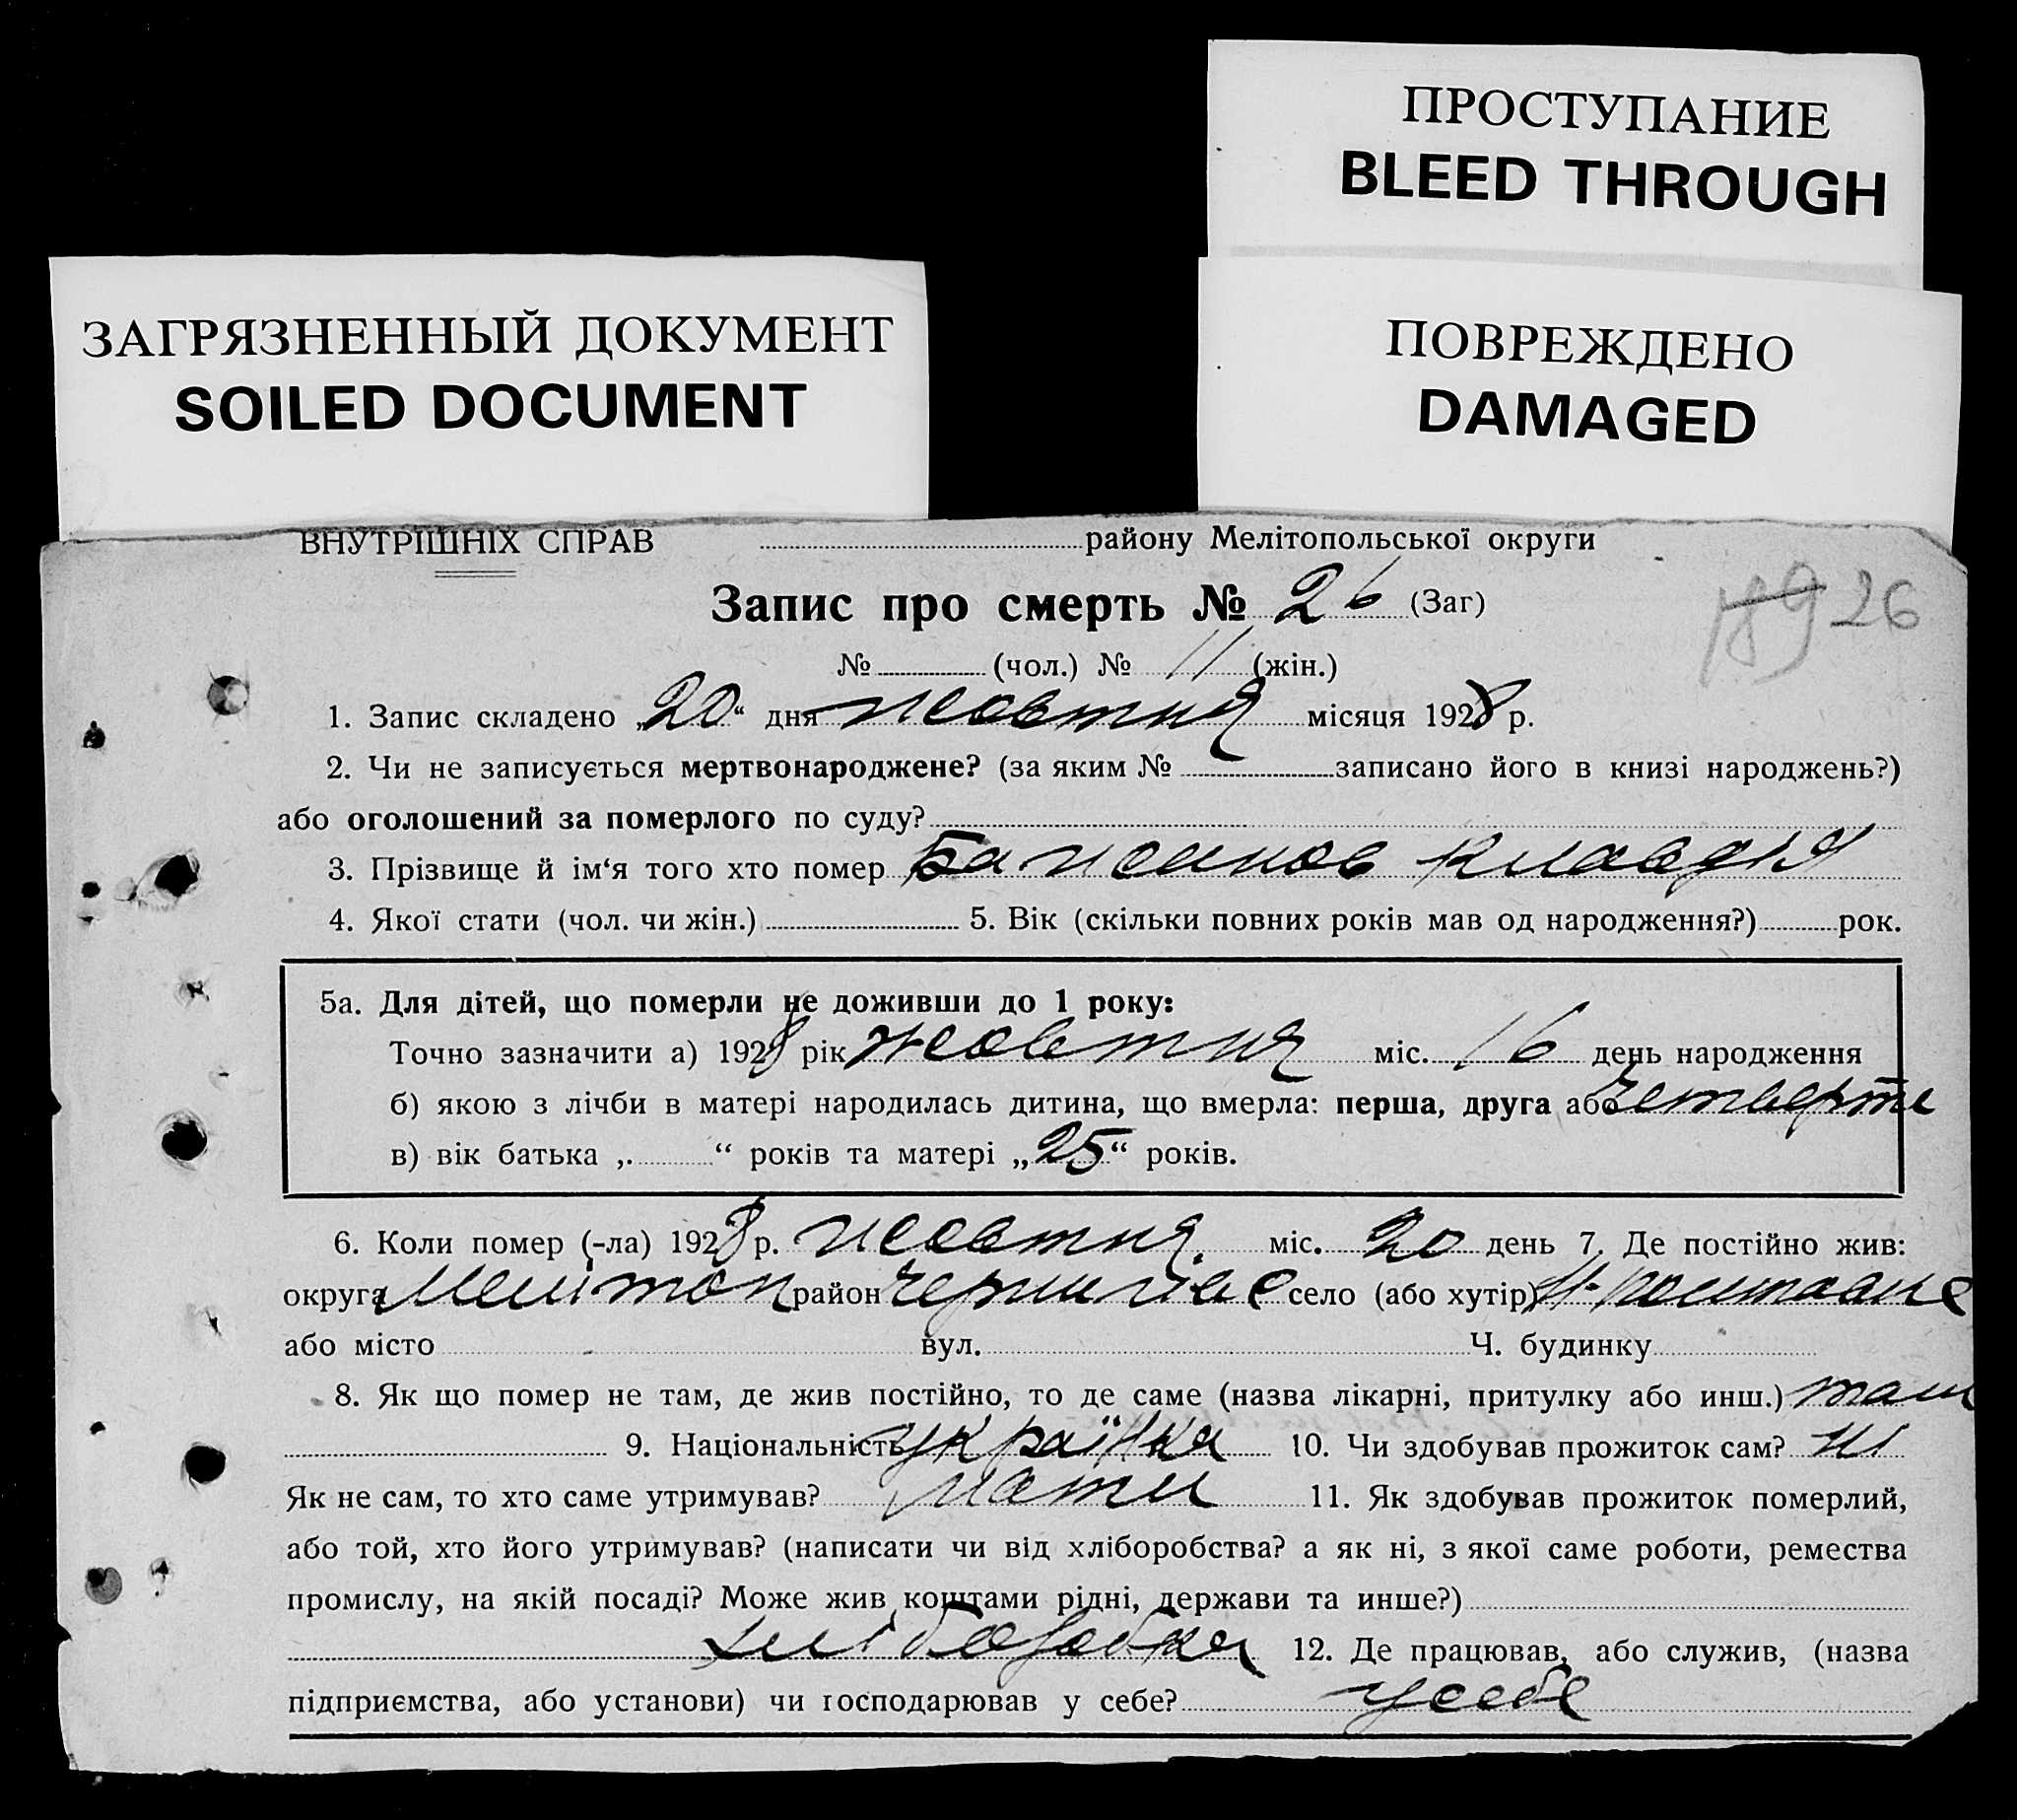 ПРОСТУПАНИЕ
BLEED THROUGH
ЗАГРЯЗНЕННЫЙ ДОКУМЕНТ
SOILED DOCUMENT
ПОВРЕЖДЕНО
DAMAGED
ВНУТРІШНІХ СПРАВ району Мелітопольської округи
Запис про смерть № 26 (Заг)
189 26
№ (чол.) № 11 (жін.)
1. Запис складено „20“ дня жовтня місяця 1928 р.
2. Чи не записується мертвонароджене? (за яким № записано його в книзі народжень?)
або оголошений за померлого по суду?
3. Прізвище й ім‘я того хто помер Клавдія
4. Якої стати (чол. чи жін.) 5. Вік (скільки повних років мав од народження?) рок.
5а. Для дітей, що померли не доживши до 1 року:
Точно зазначити а) 1928 рік жовтня міс. 16 день народження
б) якою з лічби в матері народилась дитина, що вмерла: перша, друга або четверте
в) вік батька „ “ років та матері „25“ років.
6. Коли помер (-ла) 1928 р. жовтня міс. 20 день 7. Де постійно жив:
округа Мелітоп район Чернигівс село (або хутір)
або місто вул. Ч. будинку
8. Як що помер не там, де жив постійно, то де саме (назва лікарні, притулку або инш.) там
9. Національність українка 10. Чи здобував прожиток сам? ні
Як не сам, то хто саме утримував? мати 11. Як здобував прожиток померлий,
або той, хто його утримував? (написати чи від хліборобства? а як ні, з якої саме роботи, ремества
промислу, на якій посаді? Може жив коштами рідні, держави та инше?)
хліборобка 12. Де працював, або служив, (назва
підприємства, або установи) чи господарював у себе? у себе